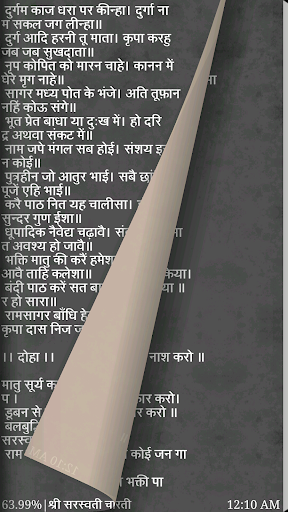 दुर्गम काज धरा पर कीन्हा। दुर्गा ना
म सकल जग लीन्हा॥
दुर्ग आदि हरनी तू माता। कृपा करहु
जब जब सुखदाता॥
नृप कोपित को मारन चाहे। कानन में
घेरे मृग नाहे॥
सागर मध्य पोत के भंजे। अति तूफान
नहिं कोऊ संगे॥
भूत प्रेत बाधा या दुःख में। हो दरि
द्र अथवा संकट में॥
नाम जपे मंगल सब होई। संशय इ
न कोई॥
पुत्रहीन जो आतुर भाई। सबै छां
पूजें एहि भाई॥
करै पाठ नित यह चालीसा।
सुन्दर गुण ईशा॥
धूपादिक नैवेद्य चढ़ावै।
त अवश्य हो जावै॥
भक्ति मातु की करैं हमेश
आवै ताहिं कलेशा॥ किया।
बंदी पाठ करें सत बा
र हो सारा॥
रामसागर बाँधि हे
कृपा दास निज ज
।। दोहा ।। नाश करो ॥
मातु सूर्य क
प । कार करो।
डूबन से
बलबुद्धि
सरस्व
राम कोई जन गा
भक्ती पा
12:10 AM
63.99%|श्री सरस्वती आरती 12:10 AM